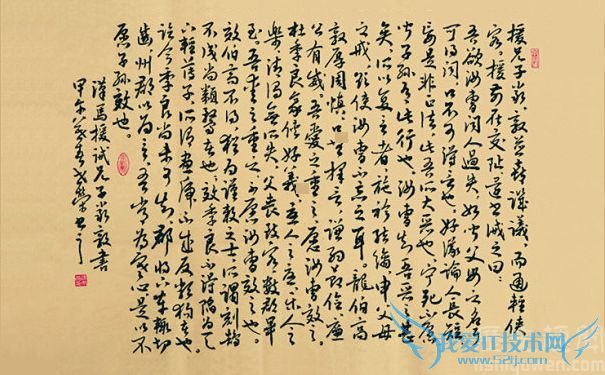 援兄子严敦并喜讥议而通轻侠
客援前在交趾还书诫之曰
吾欲汝曹闻人过失如闻父母之名耳
可得闻口不可得言也好议论人长短
妄是非正法此吾所大恶也宁死不愿
闻子孙有此行也汝曹知吾恶之甚
矣所以复言者施衿结缡申父母
之戒欲使汝曹不忘之耳龙伯高
敦厚周慎口无择言谦约节俭廉
公有威吾爱之重之愿汝曹效之
杜季良豪侠好义忧人之忧乐人之
乐清浊无所失父丧致客数郡毕
至吾爱之重之不愿汝曹效之也
效伯高不得犹为谨敕之士所谓刻鹄
不成尚类鹜者也效季良不得陷为天
下轻薄子所谓画虎不成反类狗者也
讫今季良尚未可知郡将下车辄切
齿州郡以为言吾常为寒心是以不
愿子孙效也
汉马援诫兄子严敦书
甲午
我爱IT技术网
www.52ij.com